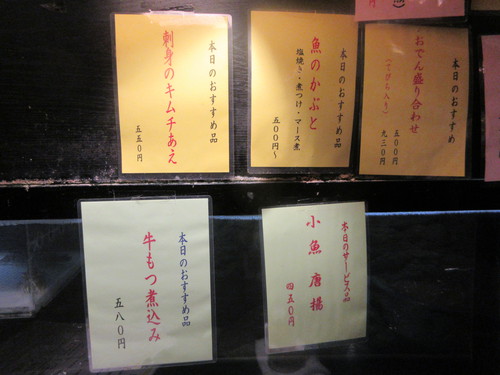 本日のおすすめ品
刺身のキムチあえ
五五〇円
本日のおすすめ品
魚のかぶと
塩焼き・煮つけ・マース煮
五〇〇円～
本日のおすすめ
おでん盛り合わせ
五〇〇円
九三〇円
本日のおすすめ品
牛もつ煮込み
五八〇円
本日のサービス品
小魚唐揚
四五〇円